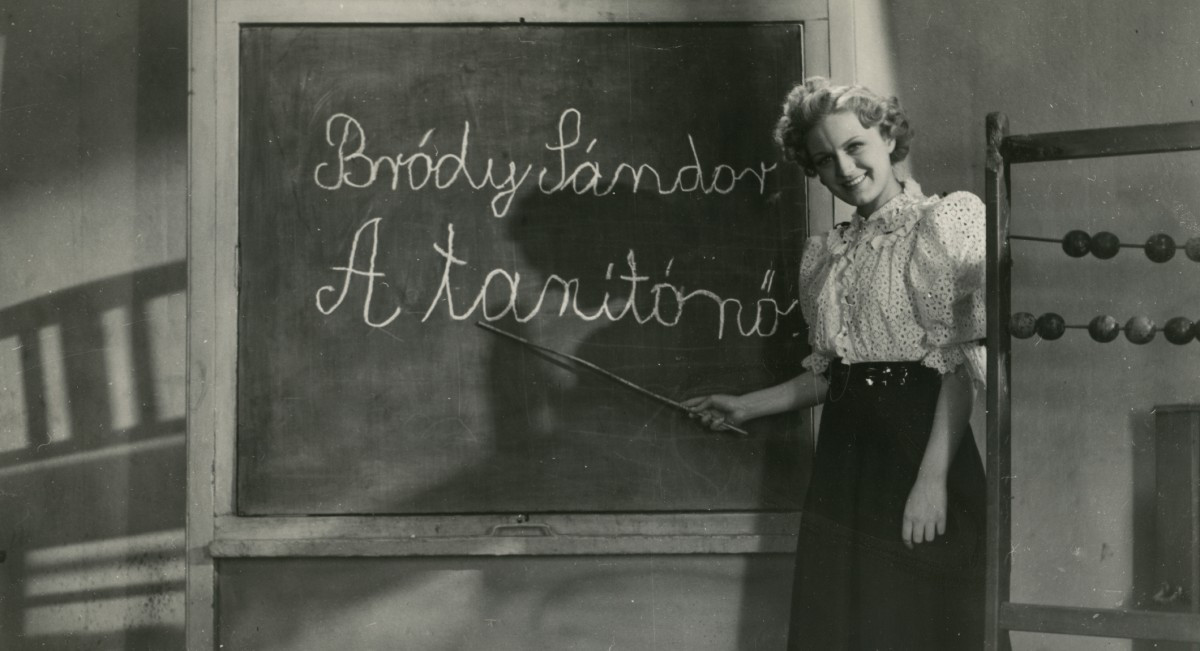 Bródy Sándor
A tanítónő.